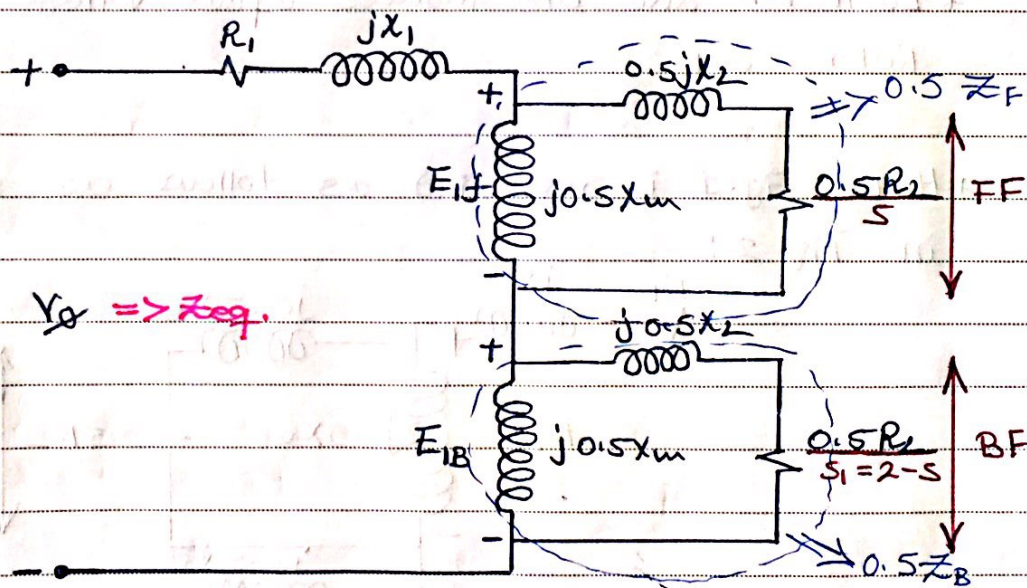 R₁
jX₁
+
0.5jX₂
0.5 Z_F
+
E₁f
j0.5Xm
0.5R₂
S
FF
-
Vø => Zeq.
j0.5X₂
+
E₁B
j0.5Xm
0.5R₂
S₁=2-S
BF
-
-
0.5Z_B